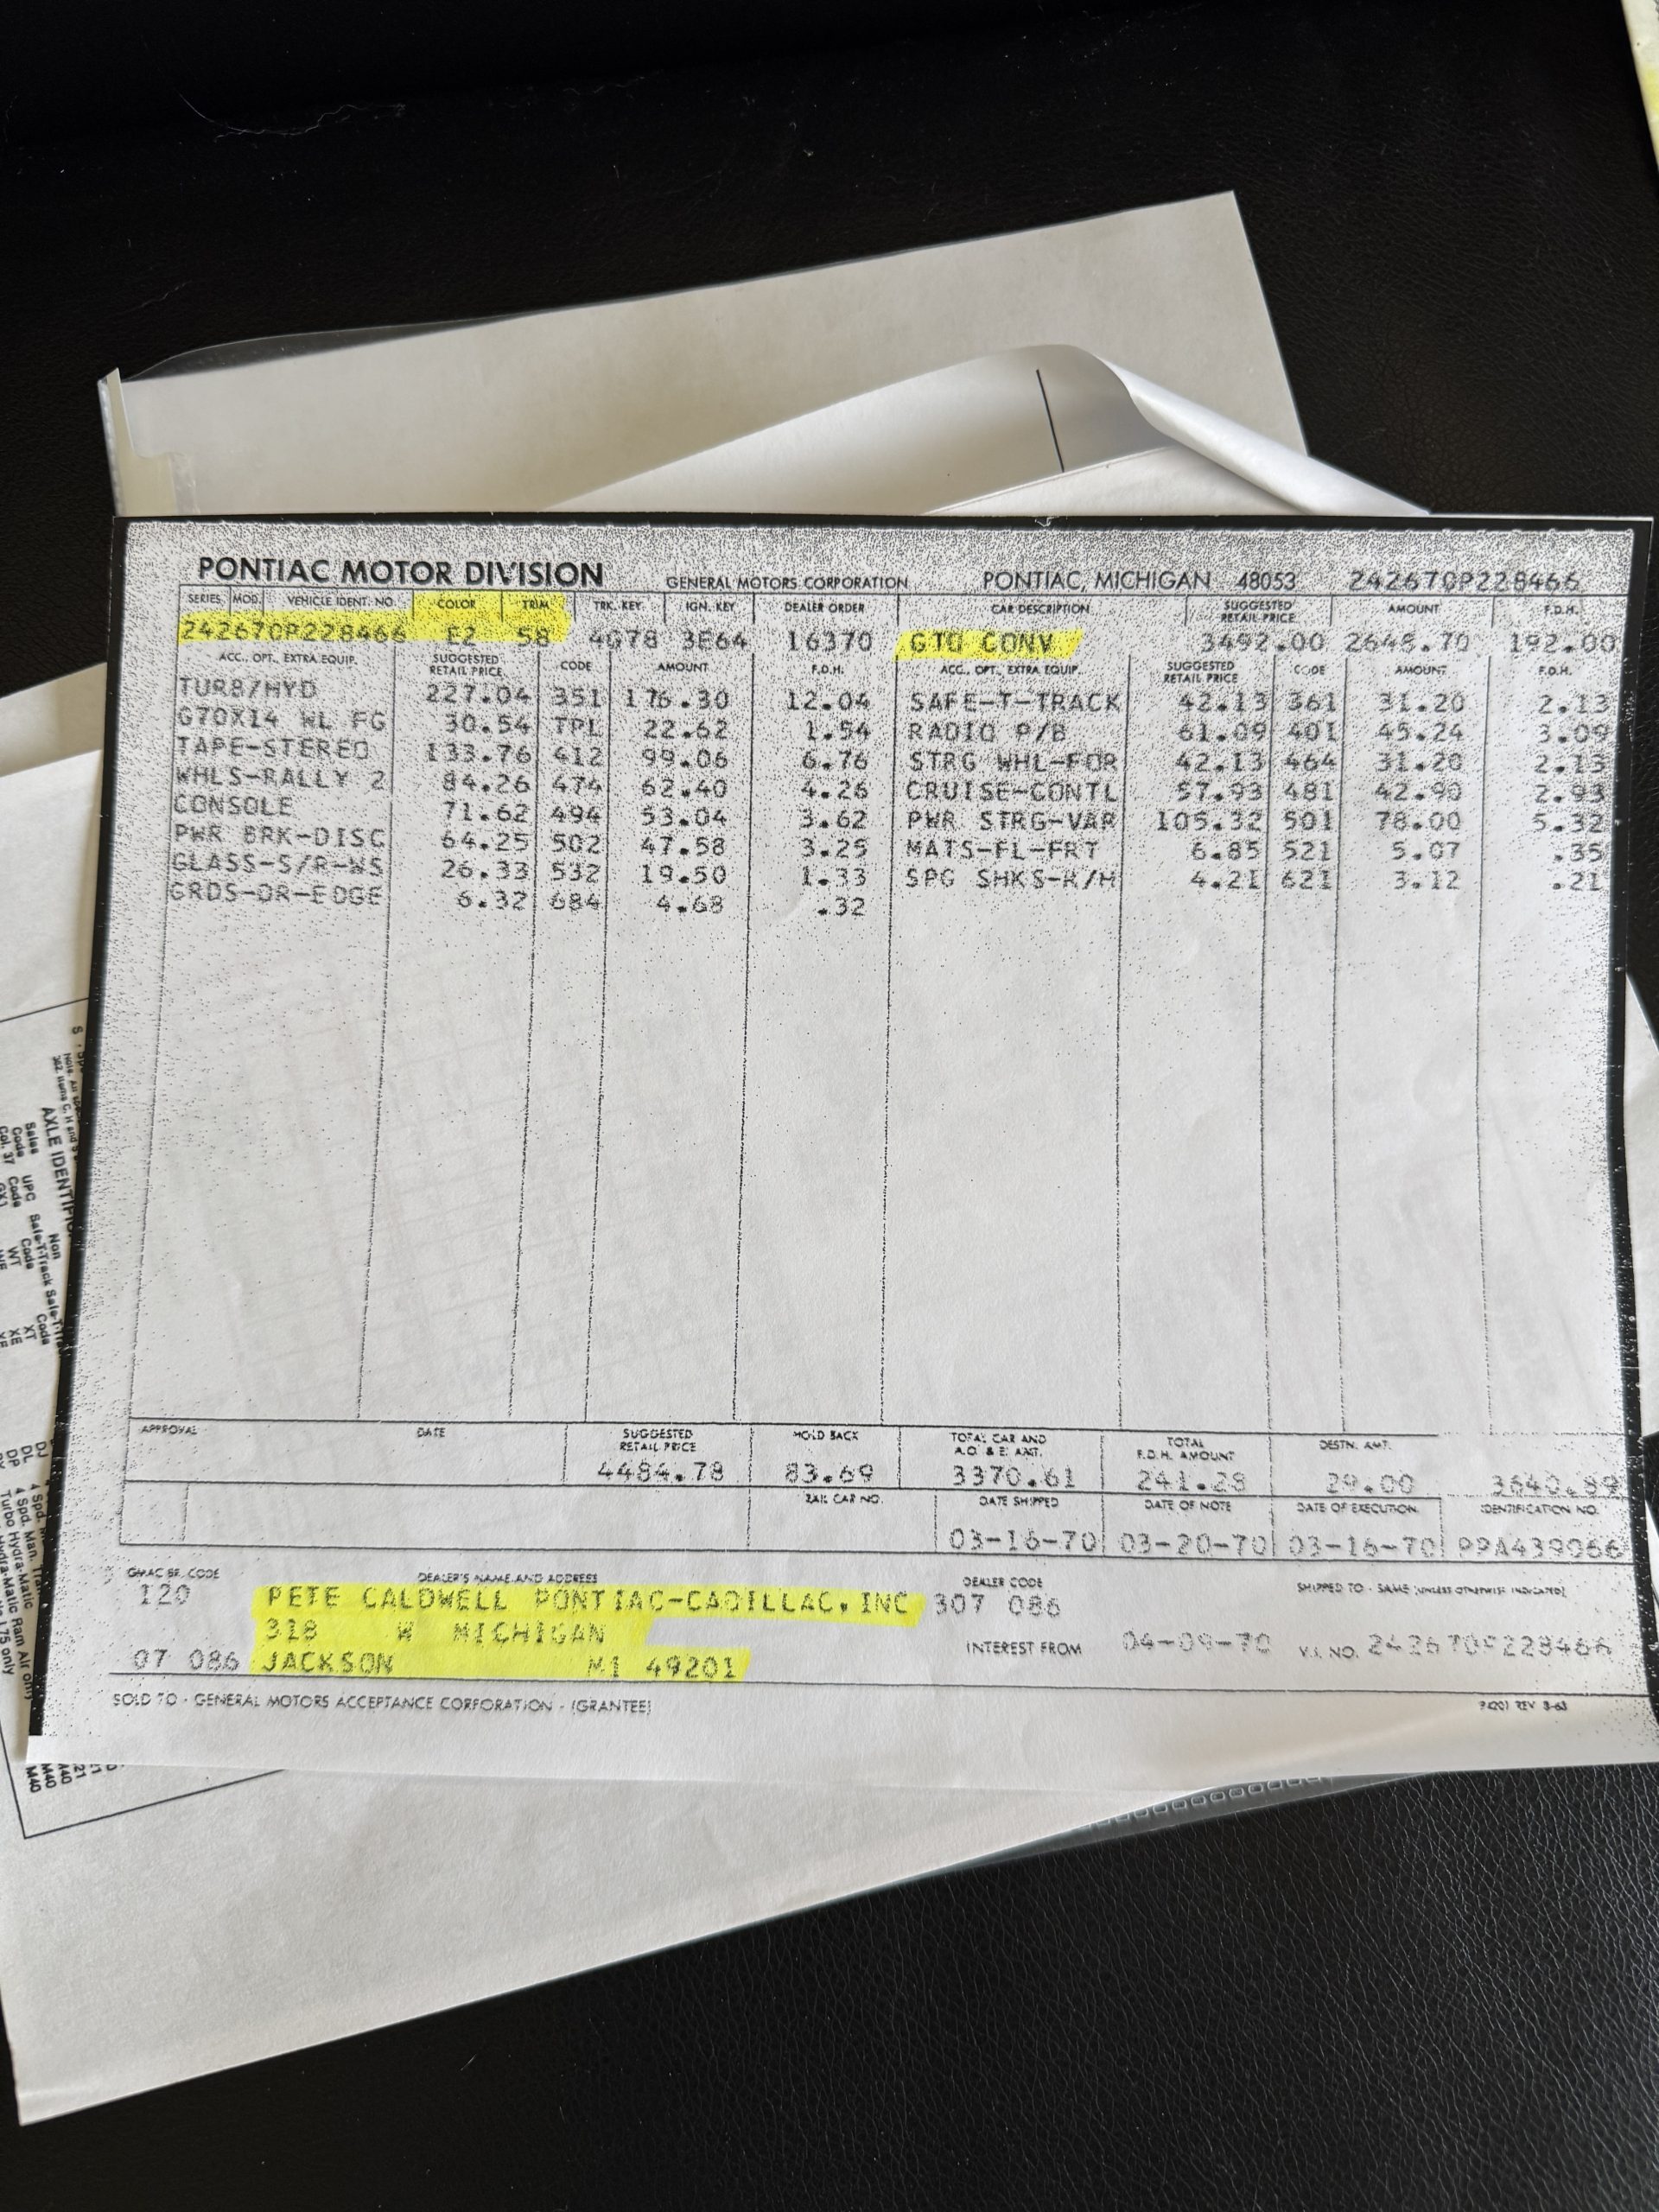 PONTIAC MOTOR DIVISION GENERAL MOTORS CORPORATION PONTIAC, MICHIGAN 48053 242670P228466
SERIES MOD. VEHICLE IDENT. NO. COLOR TRIM TRK. KEY IGN. KEY DEALER ORDER CAR DESCRIPTION SUGGESTED RETAIL PRICE AMOUNT F.D.H.
242670P228466 E2 58 4G78 3E64 16370 GTO CONV 3492.00 2648.70 192.00
ACC., OPT., EXTRA EQUIP. SUGGESTED RETAIL PRICE CODE AMOUNT F.D.H. ACC., OPT., EXTRA EQUIP. SUGGESTED RETAIL PRICE CODE AMOUNT F.D.H.
TURB/HYD 227.04 351 176.30 12.04 SAFE-T-TRACK 42.13 361 31.20 2.13
G70X14 WL FG 30.54 TPL 22.62 1.54 RADIO P/B 61.09 401 45.24 3.09
TAPE-STEREO 133.76 412 99.06 6.76 STRG WHL-FOR 42.13 464 31.20 2.13
WHLS-RALLY 2 84.26 474 62.40 4.26 CRUISE-CONTL 57.93 481 42.90 2.93
CONSOLE 71.62 494 53.04 3.62 PWR STRG-VAR 105.32 501 78.00 5.32
PWR BRK-DISC 64.25 502 47.58 3.25 MATS-FL-FRT 6.85 521 5.07 .35
GLASS-S/R-WS 26.33 532 19.50 1.33 SPG SHKS-R/H 4.21 621 3.12 .21
GRDS-DR-EDGE 6.32 684 4.68 .32
APPROVAL DATE SUGGESTED RETAIL PRICE HOLD BACK TOTAL CAR AND A.O. & E. AMT. TOTAL F.D.H. AMOUNT DESTN. AMT.
4484.78 83.69 3370.61 241.28 29.00 3640.89
RAIL CAR NO. DATE SHIPPED DATE OF NOTE DATE OF EXECUTION IDENTIFICATION NO.
03-16-70 03-20-70 03-16-70 PPA439066
GMAC BR. CODE DEALER'S NAME AND ADDRESS DEALER CODE SHIPPED TO - SAME (UNLESS OTHERWISE INDICATED)
120 PETE CALDWELL PONTIAC-CADILLAC, INC 307 086
318 W MICHIGAN INTEREST FROM 04-09-70 V.I. NO. 242670P228466
07 086 JACKSON MI 49201
SOLD TO - GENERAL MOTORS ACCEPTANCE CORPORATION - (GRANTEE)
AXLE
Sales Code Col. 37
UPC Code WT
Non Safe-T-Track
Code XT XE
DJ
DL
DP
4 Spd.
4 Spd. Man.
Turbo Hydra-Matic
Hydra-Matic Ram Air only
M40
M40